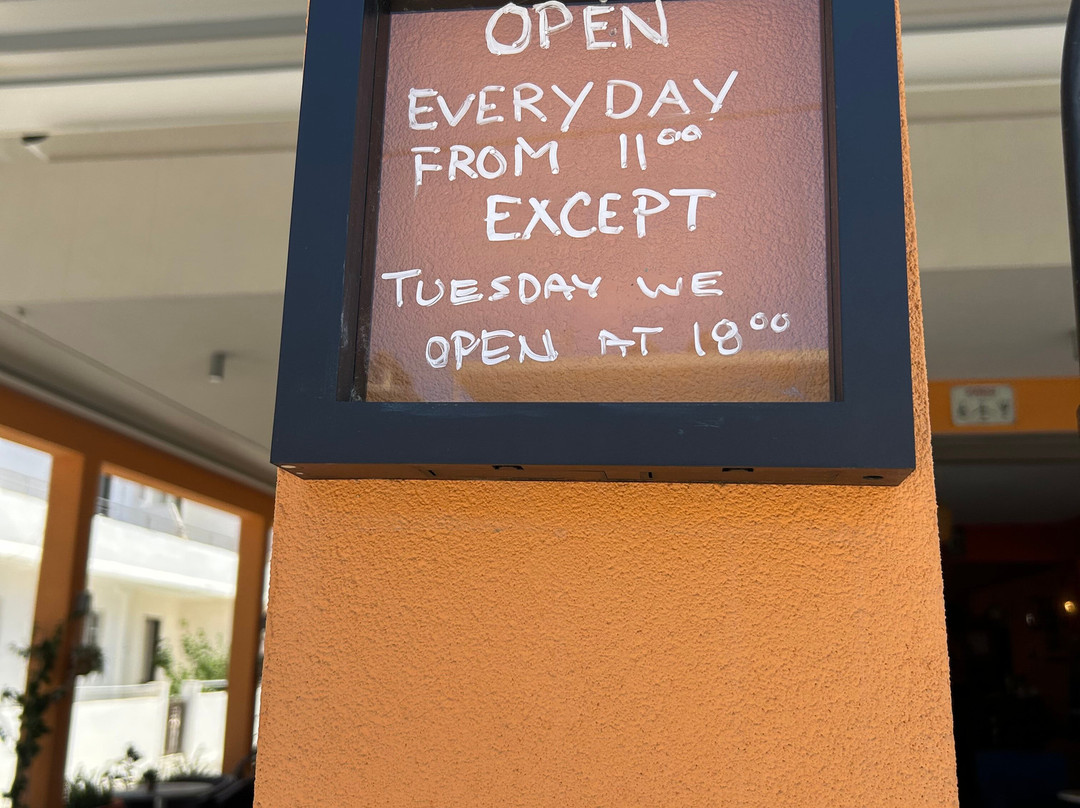 OPEN
EVERYDAY
FROM 11⁰⁰
EXCEPT
TUESDAY WE
OPEN AT 18⁰⁰